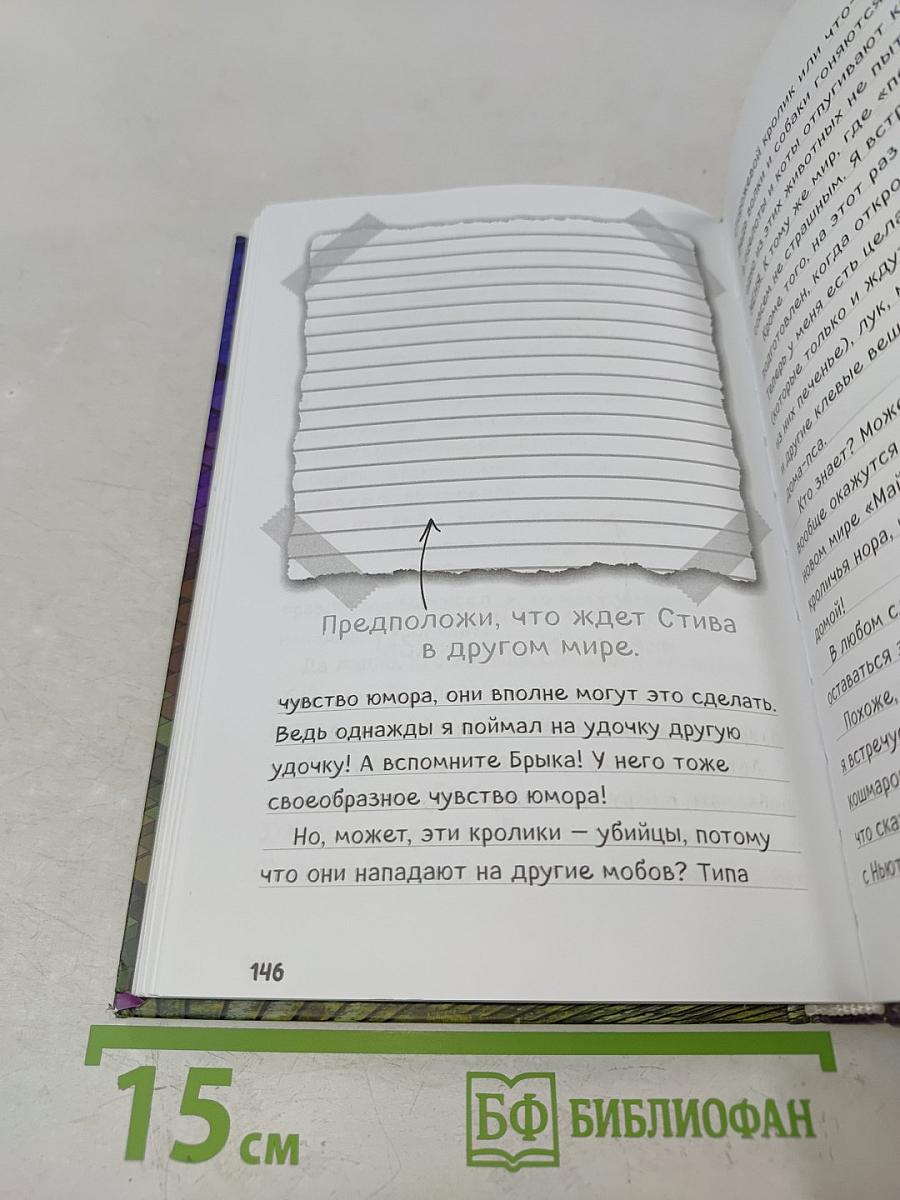 Предположи, что ждет Стива
в другом мире.
чувство юмора, они вполне могут это сделать.
Ведь однажды я поймал на удочку другую
удочку! А вспомните Брыка! У него тоже
своеобразное чувство юмора!
Но, может, эти кролики – убийцы, потому
что они нападают на другие мобов? Типа
146
кролик или что-
волки и собаки гоняются
и коты отпугивают
из этих животных не
К тому же мир, где
совсем не страшным. Я
Кроме того, на этот раз
подготовлен, когда
теперь у меня есть
(которые только и
из них печенье), лук,
и другие клевые
дома-пса.
Кто знает?
вообще окажутся
новом мире
кроличья нора,
домой!
В любом
оставаться
Похоже,
я
что
с
15 см
БФ БИБЛИОФАН